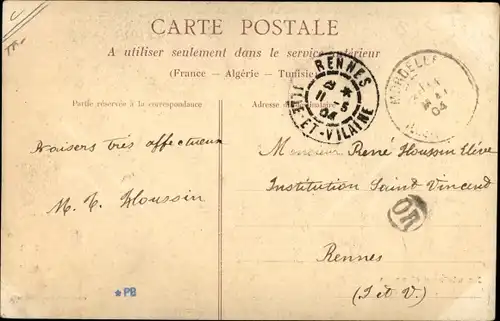 CARTE POSTALE
A utiliser seulement dans le service intérieur
(France — Algérie — Tunisie)
Partie réservée à la correspondance
Adresse du destinataire
RENNES
ILLE-ET-VILAINE
11 - 5
04
MORDELLES
04
Baisers très affectueux
M. T. Houssin
Monsieur René Houssin Elève
Institution Saint Vincend
OR
Rennes
(I et V.)
*PB